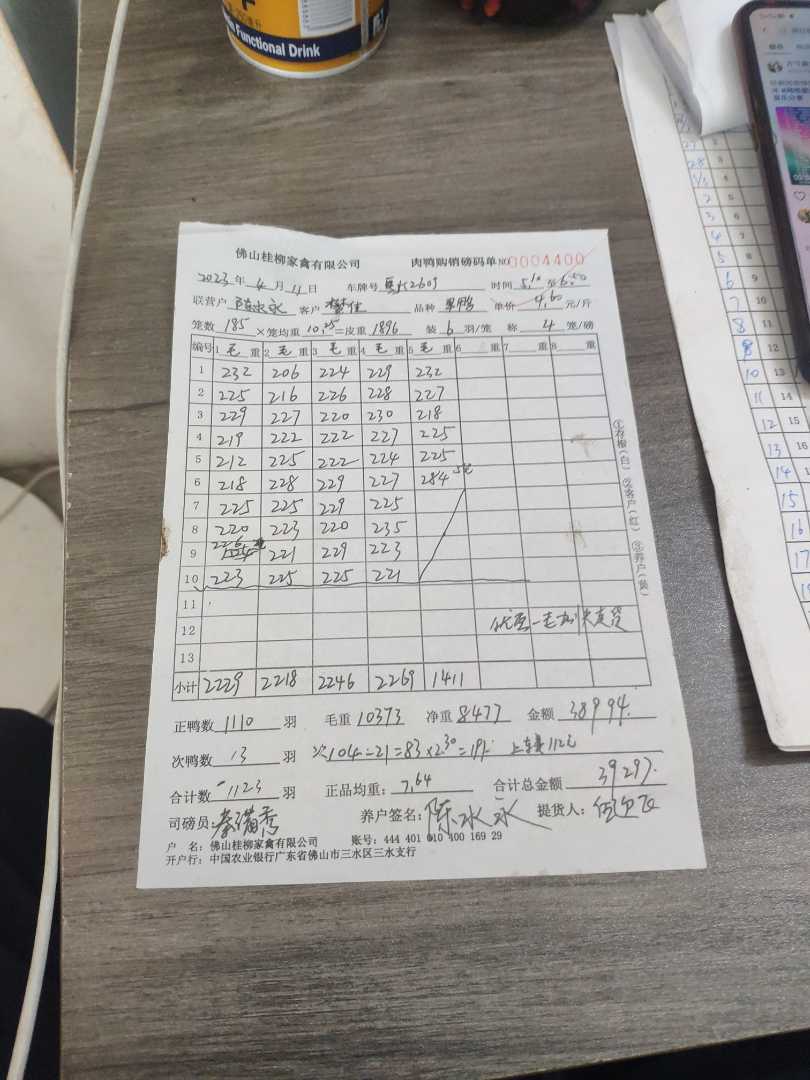 Functional Drink
佛山桂柳家禽有限公司 肉鸭购销磅码单 NO 0004400
2023年 4月 11日 车牌号 时间 5:10 至 6:50
联营户 陈水永 客户 品种 单价 4.60 元/斤
笼数 185 ×笼均重 10.25 =皮重 1896 装 6 羽/笼 称 4 笼/磅
编号 1 毛重 2 毛重 3 毛重 4 毛重 5 毛重 6 重 7 重 8 重
1 232 206 224 229 232
2 225 216 226 228 227
3 229 227 220 230 218
4 219 222 222 227 225
5 212 225 222 224 225
6 218 228 229 227 284 5笼
7 225 225 229 225
8 220 223 220 235
9 226 221 229 223
10 223 225 225 221
11
12
13
小计 2229 2218 2246 2269 1411
正鸭数 1110 羽 毛重 10373 净重 8477 金额 38994.
次鸭数 13 羽 次104-21=83×2.30=191
合计数 1123 羽 正品均重: 7.64 合计总金额 39297.
司磅员: 秦满秀 养户签名: 陈水永 提货人:
户 名: 佛山桂柳家禽有限公司 账号: 444 401 010 400 169 29
开户行: 中国农业银行广东省佛山市三水区三水支行
①存根(白) ②客户(红) ③养户(黄)